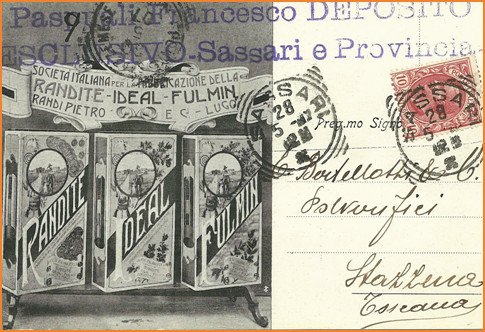 Pasquali Francesco DEPOSITO
ESCLUSIVO-Sassari e Provincia
SOCIETÀ ITALIANA PER LA FABBRICAZIONE DELLA
RANDITE-IDEAL-FULMIN
RANDI PIETRO E C-LUGO
RANDITE
IDEAL
FULMIN
SASSARI
28
5
SASSARI
28
5
Preg.mo Signor
10
Polverifici
Stazzema
Toscana